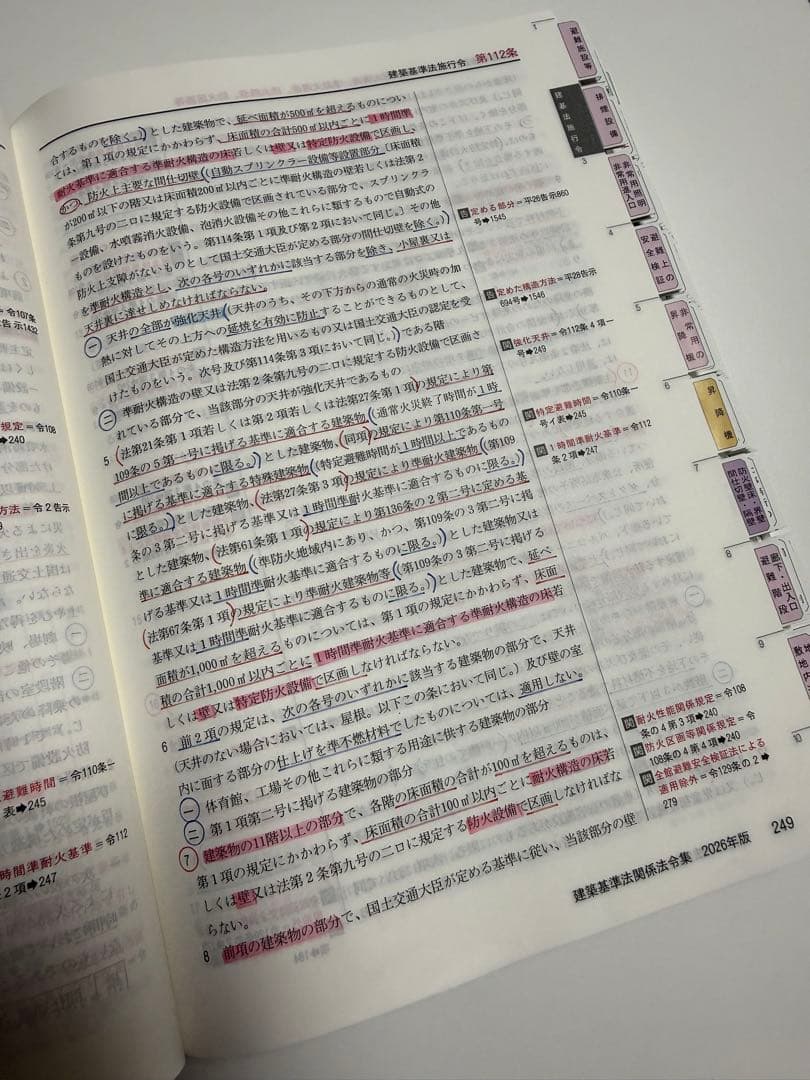 建築基準法施行令 第112条
合するものを除く。)とした建築物で、延べ面積が500㎡を超えるものについ
ては、第1項の規定にかかわらず、床面積の合計500㎡以内ごとに1時間準
耐火基準に適合する準耐火構造の床若しくは壁又は特定防火設備で区画し、
かつ、防火上主要な間仕切壁(自動スプリンクラー設備等設置部分(床面積
が200㎡以下の階又は床面積200㎡以内ごとに準耐火構造の壁若しくは法第2
条第九号の二ロに規定する防火設備で区画されている部分で、スプリンクラ
ー設備、水噴霧消火設備、泡消火設備その他これらに類するもので自動式の
ものを設けたものをいう。第114条第1項及び第2項において同じ。)その他
防火上支障がないものとして国土交通大臣が定める部分の間仕切壁を除く。)
を準耐火構造とし、次の各号のいずれかに該当する部分を除き、小屋裏又は
天井裏に達せしめなければならない。
一 天井の全部が強化天井(天井のうち、その下方からの通常の火災時の加
熱に対してその上方への延焼を有効に防止することができるものとして、
国土交通大臣が定めた構造方法を用いるもの又は国土交通大臣の認定を受
けたものをいう。次号及び第114条第3項において同じ。)である階
二 準耐火構造の壁又は法第2条第九号の二ロに規定する防火設備で区画さ
れている部分で、当該部分の天井が強化天井であるもの
5 法第21条第1項若しくは第2項若しくは法第27条第1項の規定により第
109条の5第一号に掲げる基準に適合する建築物(通常火災終了時間が1時
間以上であるものに限る。)とした建築物、同項の規定により第110条第一号
に掲げる基準に適合する特殊建築物(特定避難時間が1時間以上であるもの
に限る。)とした建築物、法第27条第3項の規定により準耐火建築物(第109
条の3第二号に掲げる基準又は1時間準耐火基準に適合するものに限る。)
とした建築物、法第61条第1項の規定により第136条の2第二号に定める基
準に適合する建築物(準防火地域内にあり、かつ、第109条の3第二号に掲
げる基準又は1時間準耐火基準に適合するものに限る。)とした建築物又は
法第67条第1項の規定により準耐火建築物等(第109条の3第二号に掲げる
基準又は1時間準耐火基準に適合するものに限る。)とした建築物で、延べ
面積が1,000㎡を超えるものについては、第1項の規定にかかわらず、床面
積の合計1,000㎡以内ごとに1時間準耐火基準に適合する準耐火構造の床若
しくは壁又は特定防火設備で区画しなければならない。
6 前2項の規定は、次の各号のいずれかに該当する建築物の部分で、天井
(天井のない場合においては、屋根。以下この条において同じ。)及び壁の室
内に面する部分の仕上げを準不燃材料でしたものについては、適用しない。
一 体育館、工場その他これらに類する用途に供する建築物の部分
二 第1項第二号に掲げる建築物の部分
7 建築物の11階以上の部分で、各階の床面積の合計が100㎡を超えるものは、
第1項の規定にかかわらず、床面積の合計100㎡以内ごとに耐火構造の床若
しくは壁又は法第2条第九号の二ロに規定する防火設備で区画しなければな
らない。
8 前項の建築物の部分で、国土交通大臣が定める基準に従い、当該部分の壁
告 定める部分=平26告示860
号➡1545
告 定めた構造方法=平28告示
694号➡1546
関 強化天井=令112条4項一
号➡249
関 特定避難時間=令110条一
号イ表➡245
関 1時間準耐火基準=令112
条2項➡247
関 耐火性能関係規定=令108
条の4第3項➡240
関 防火区画等関係規定=令
108条の4第4項➡240
関 全館避難安全検証法による
適用除外=令129条の2➡
279
建築基準法関係法令集 2026年版 249
建基法施行令
1
避難施設等
排煙設備
3
非常用照明
非常用進入口
4
避難上の
安全検証
5
非常用の
昇降機
6
昇降機
7
防火壁床・界壁
間仕切壁・隔壁
8
廊下・出入口
避難階段
9
敷地
10
=令107条
告示1432
規定=令108
➡240
方法=令2告示
避難時間=令110条一
表➡245
時間準耐火基準=令112
2項➡247